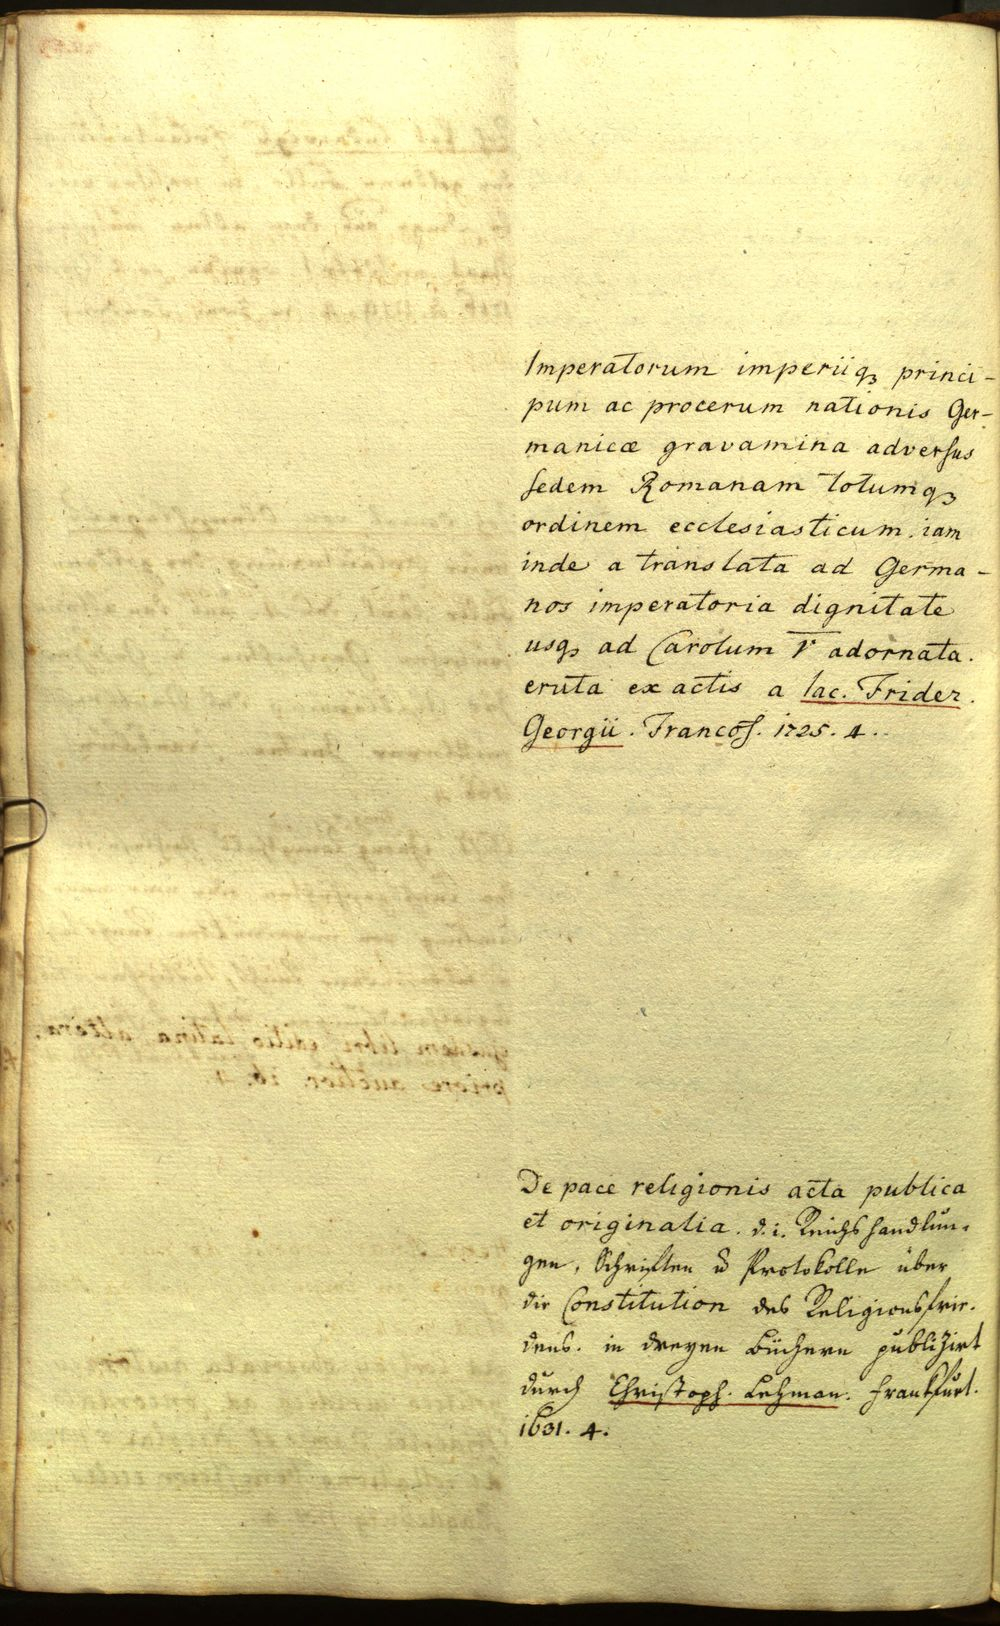 Imperatorum imperiiq₃ princi-
pum ac procerum nationis Ger-
manicæ gravamina adverſus
ſedem Romanam totumq₃
ordinem ecclesiasticum. iam
inde a translata ad Germa-
nos imperatoria dignitate
usq₃ ad Carolum V adornata.
eruta ex actis a Iac. Frider.
Georgii. Francof. 1725. 4.
De pace religionis acta publica
et originalia. d. i. Reichshandlun-
gen, Schriften u Protokolle über
die Constitution des Religionsfrie-
dens. in dreyen Büchern publizirt
durch Christoph. Lehman. Frankfurt.
1631. 4.